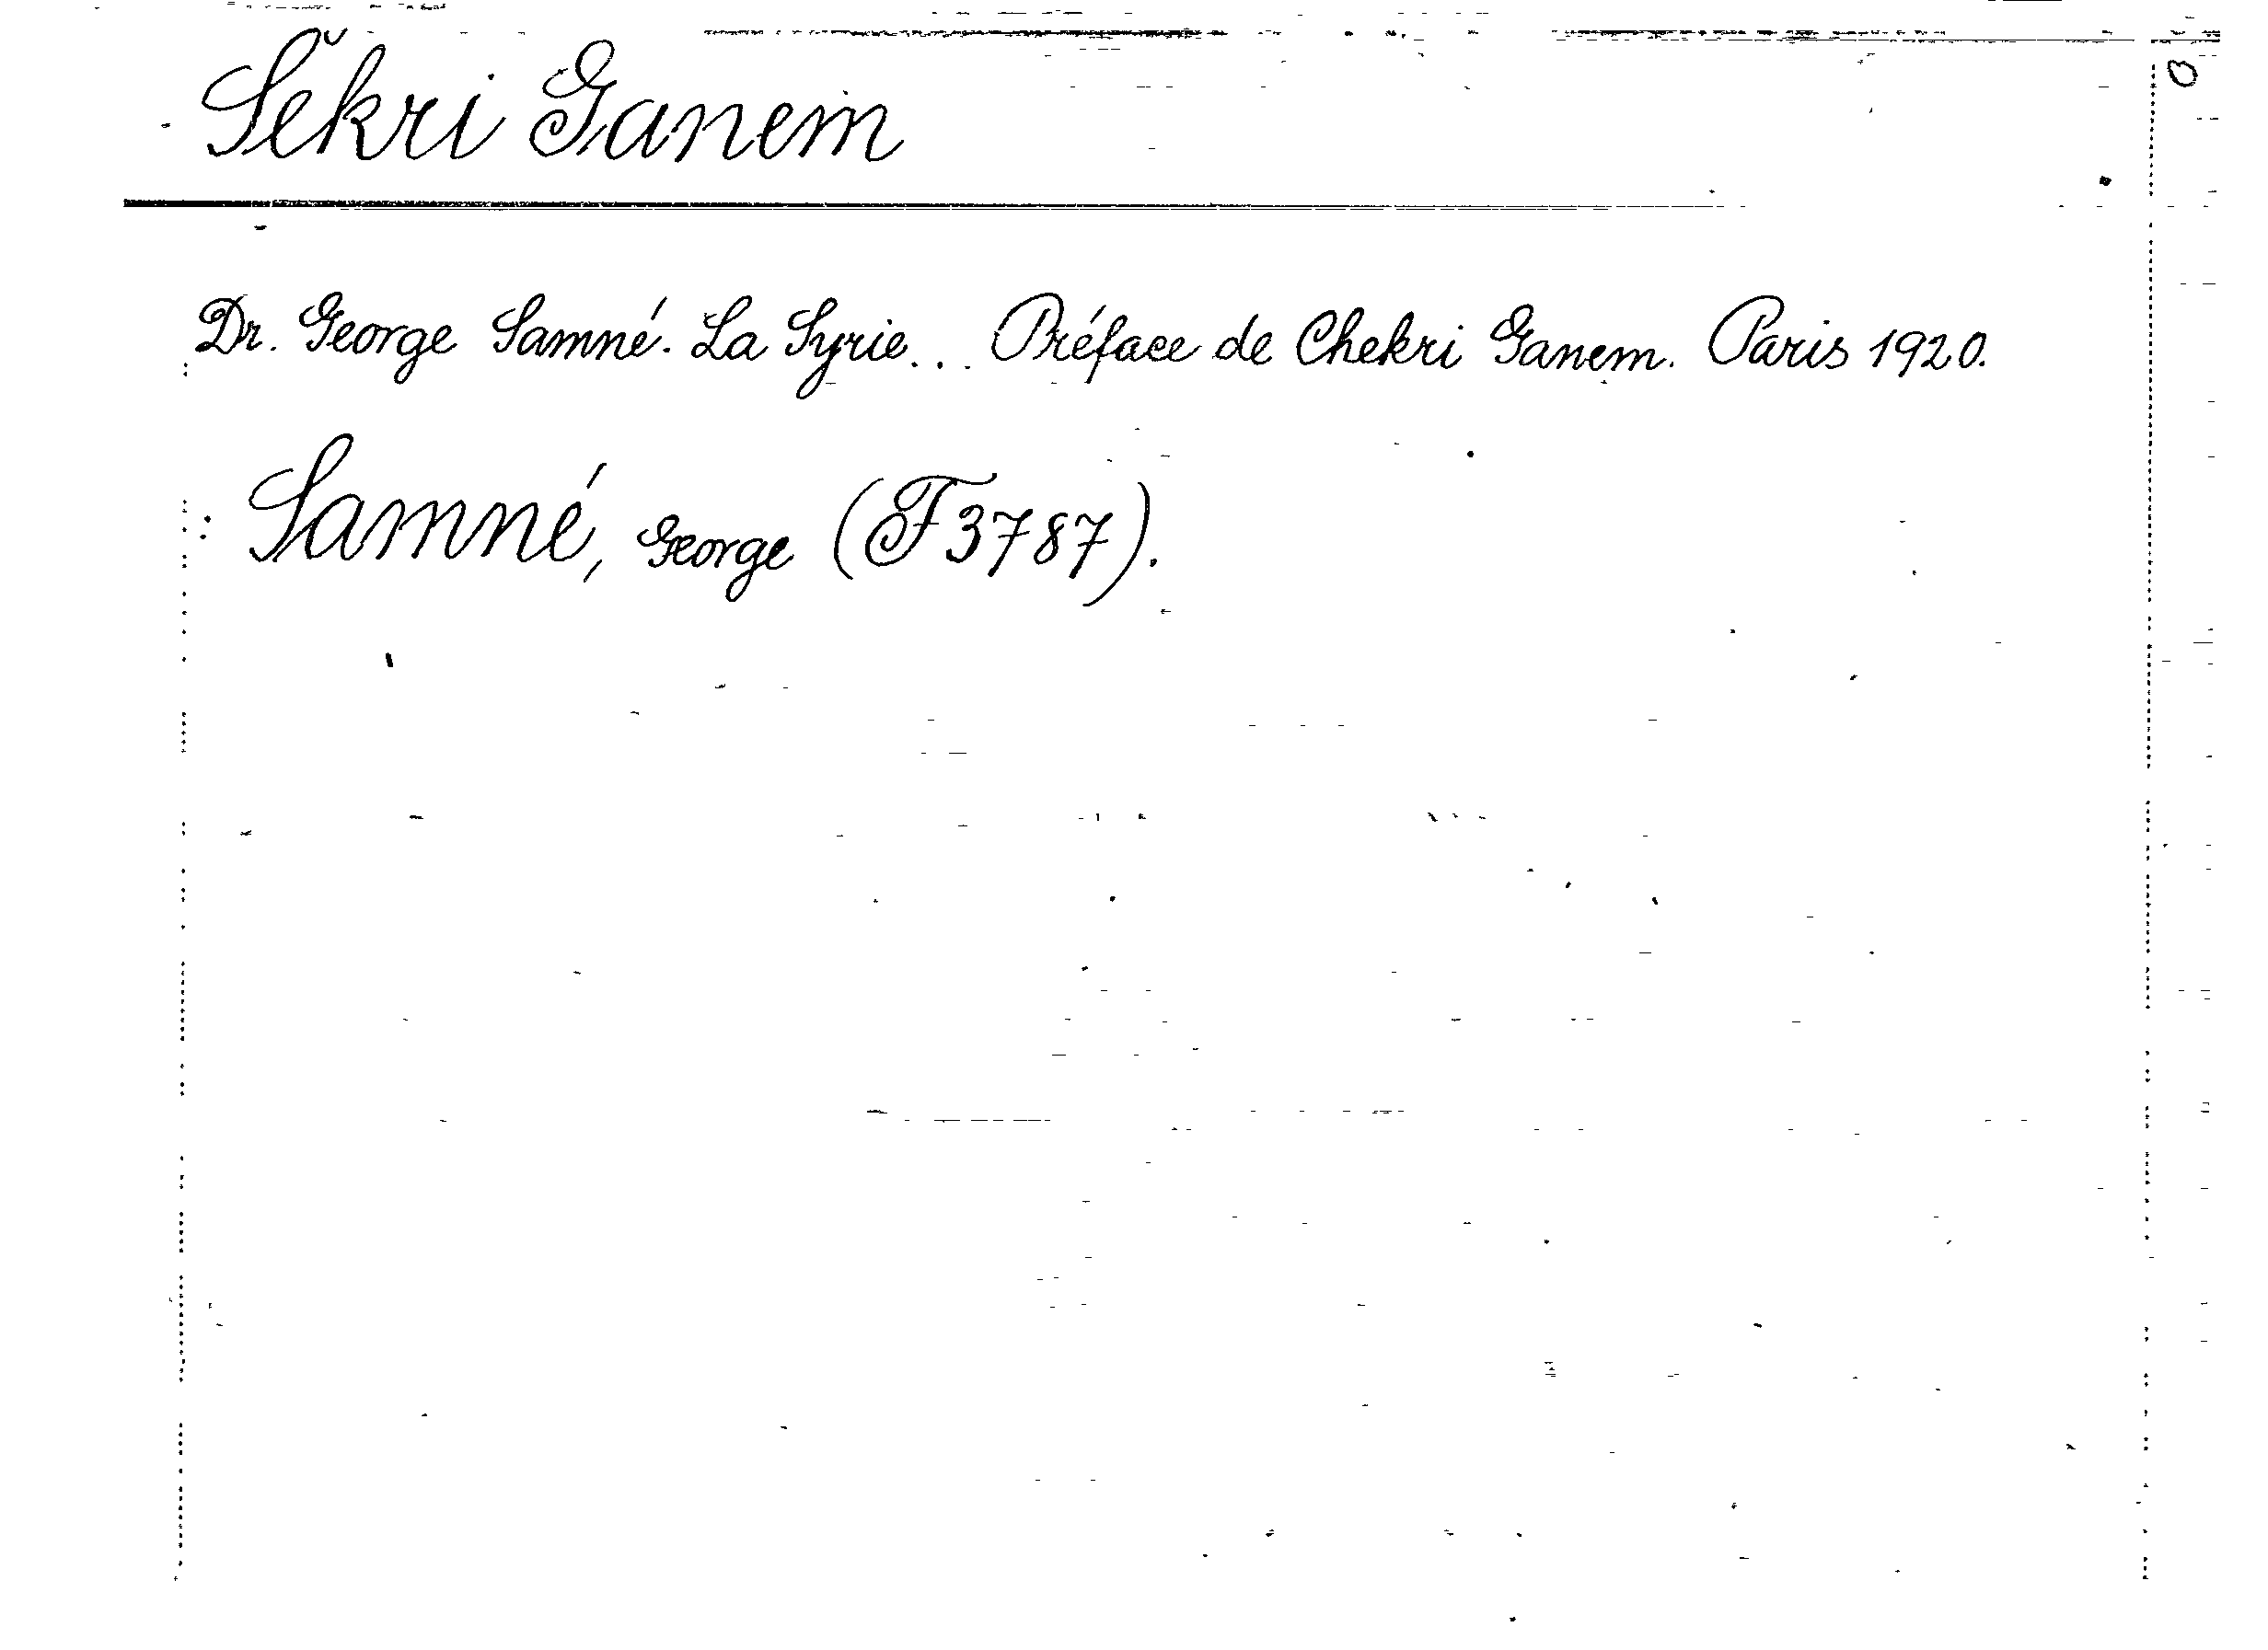 Šekri Ganem
Dr. George Samné. La Syrie... Préface de Chekri Ganem. Paris 1920.
: Samné, George (F 3787).